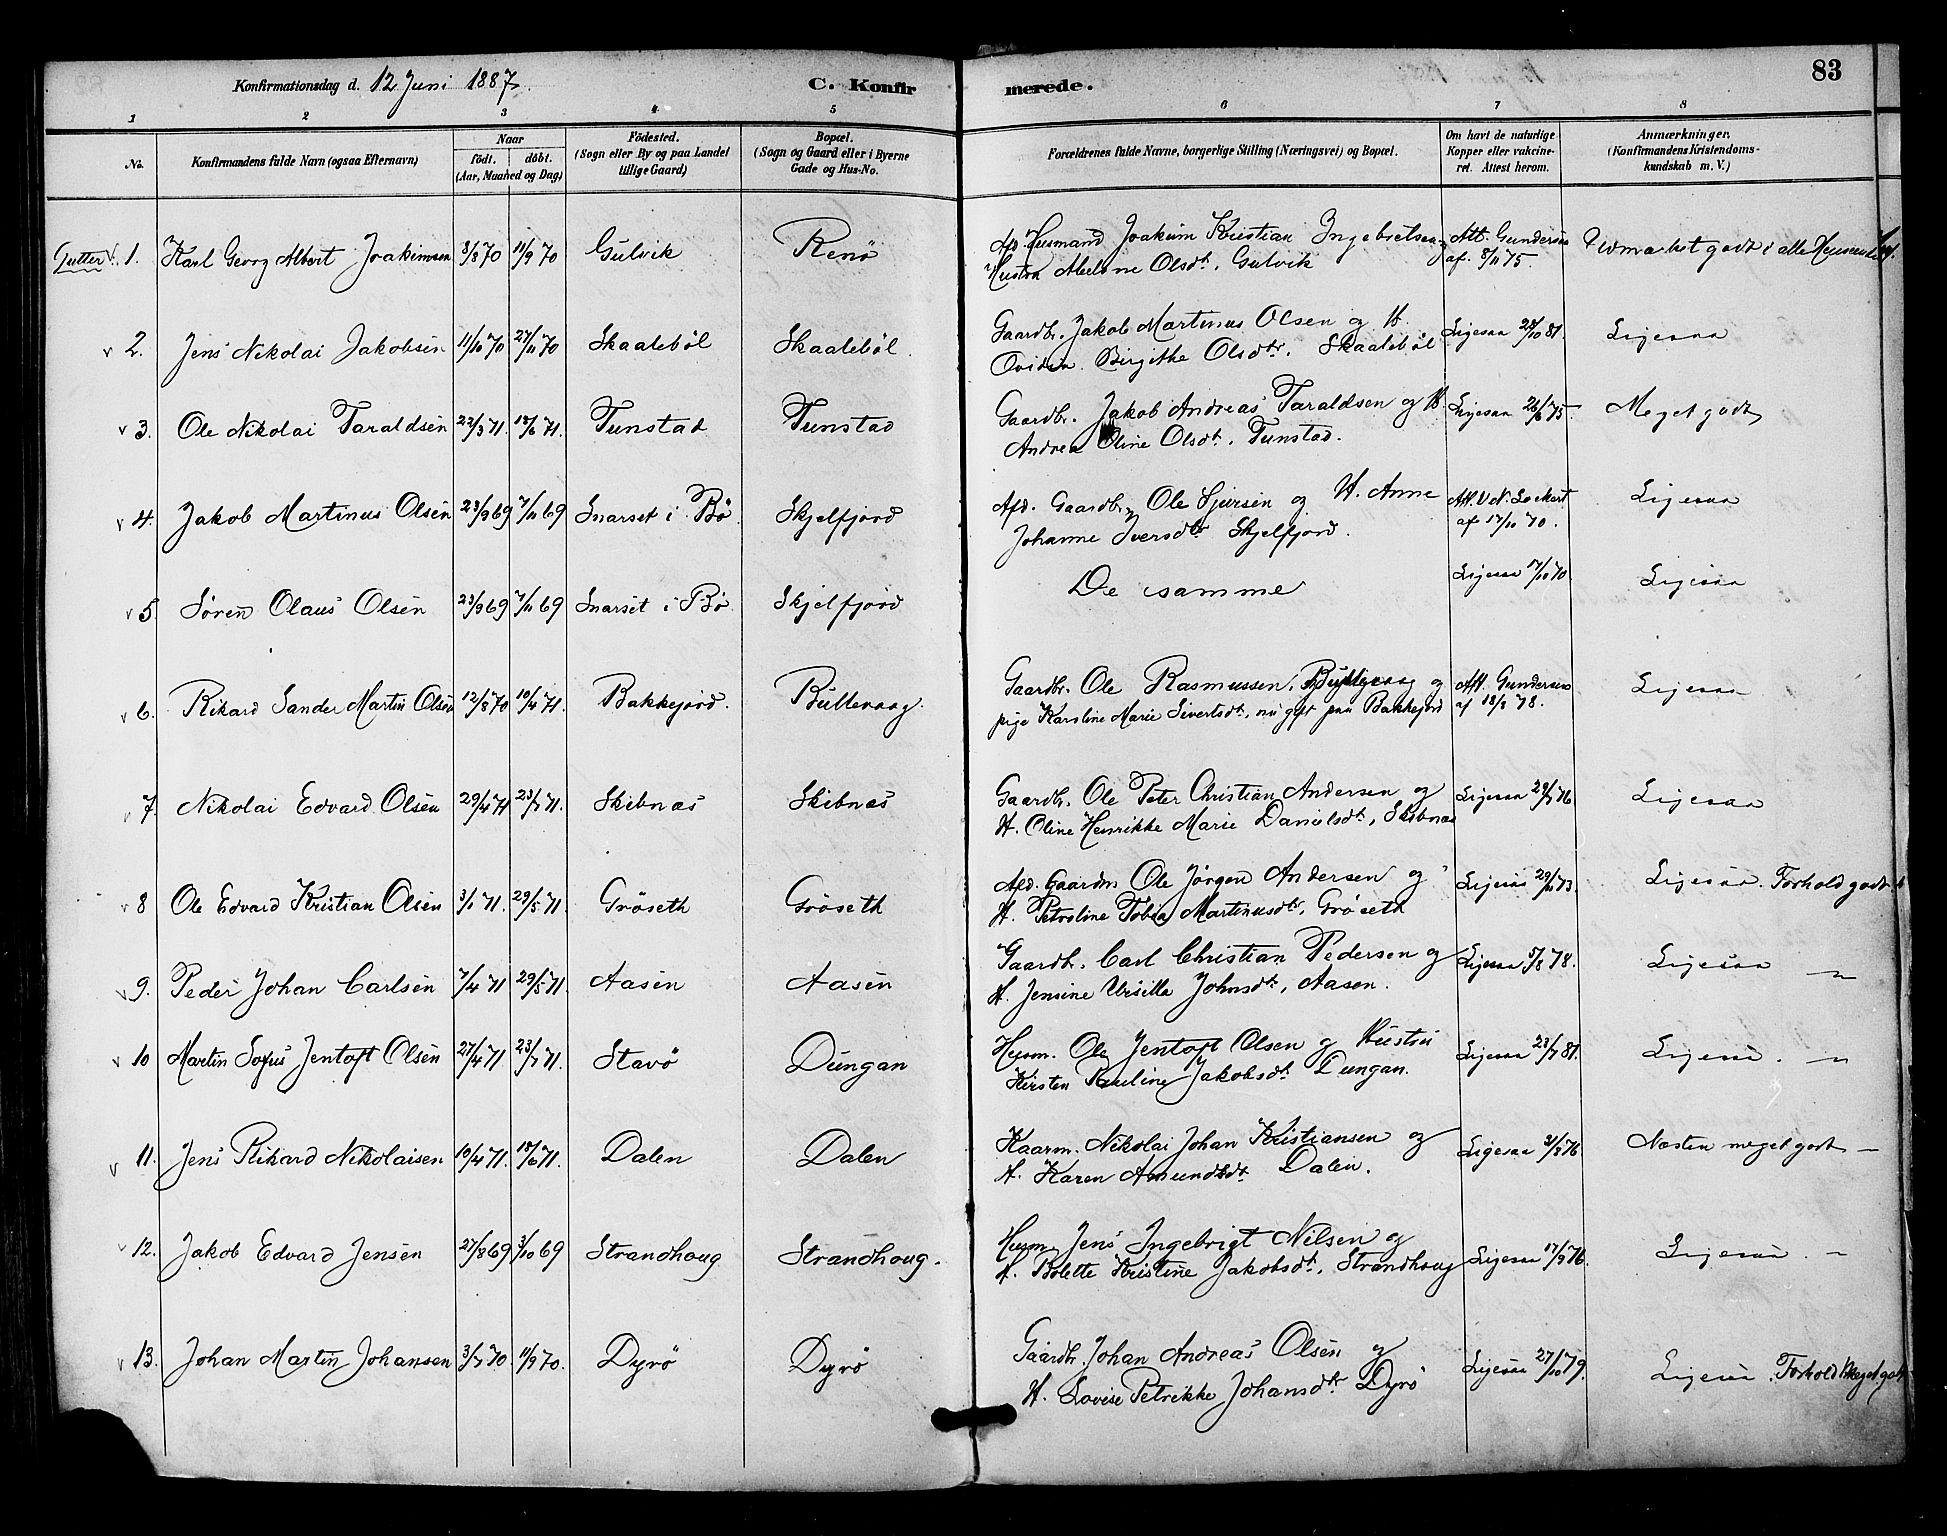 83
Konfirmationsdag d. 12 Juni 1887. C. Konfirmerede.
1 2 3 4 5 6 7 8
No. Konfirmandens fulde Navn (ogsaa Efternavn) Naar født. døbt. (Aar, Maaned og Dag) Fødested. (Sogn eller By og paa Landet tillige Gaard) Bopæl. (Sogn og Gaard eller i Byerne Gade og Hus-No. Forældrenes fulde Navne, borgerlige Stilling (Næringsvei) og Bopæl. Om havt de naturlige Kopper eller vakcineret. Attest herom. Anmærkninger. (Konfirmandens Kristendomskundskab m. V.)
Gutter 1. Karl Georg Albert Joakimsen 3/8 70 11/9 70 Gulvik Renö Afd. Husmand Joakim Kristian Ingebretsen Att. Gundersen Udmærket godt i alle Henseender
Hustru Abelone Olsdt. Gulvik af 8/11 75.
2. Jens Nikolai Jakobsen 11/10 70 27/11 70 Skaaleböl Skaaleböl. Gaardbr. Jakob Martinus Olsen og H. Ligesaa 28/10 81. Ligesaa
Birgithe Olsdtr. Skaaleböl
3. Ole Nikolai Taraldsen 22/3 71. 18/6 71. Tunstad Tunstad Gaardbr. Jakob Andreas Taraldsen og H. Ligesaa 26/6 75. Meget godt
Andrea Oline Olsdt. Tunstad.
4. Jakob Martinus Olsen 23/9 69 7/11 69 Snarset i Bö Skjelfjord Afd. Gaardbr. Ole Sjursen og H. Anne Att. V. N. Lockert Ligesaa
Johanne Iversdtr Skjelfjord. af 17/10 70.
5. Sören Olaus Olsen 23/9 69 7/11 69 Snarset i Bö Skjelfjord De samme Ligesaa 17/10 70 Ligesaa
6. Rikard Sander Martin Olsen 12/8 70 10/4 71. Bakkejord. Bultevaag. Gaardbr. Ole Rasmussen, og Att. Gundersen Ligesaa
pige Karoline Marie Sivertsdt., nu gift paa Bakkejord af 18/8 78.
7. Nikolai Edvard Olsen 29/4 71 23/7 71. Skibnæs Skibnæs Gaardbr. Ole Peter Christian Andersen og Ligesaa 29/7 76 Ligesaa
H. Oline Henrikke Marie Danielsdt., Skibnæs
8 Ole Edvard Kristian Olsen 3/1 71. 29/5 71. Gröseth Gröseth Afd. Gaardm. Ole Jörgen Andersen og Ligesaa 29/11 73. Ligesaa. Forhold godt
H. Petroline Tobea Martinusdtr, Gröseth
9. Peder Johan Carlsen 7/4 71 29/5 71. Aasen Aasen Gaardbr. Carl Christian Pedersen og Ligesaa 5/8 78. Ligesaa — " —
H. Jensine Ursilla Johnsdt., Aasen.
10 Martin Sofus Jentoft Olsen 27/4 71 23/7 71. Stavö Dungan Husm. Ole Jentoft Olsen og Hustru Ligesaa 23/7 81. Ligesaa. — " —
Kirsten Pauline Jakobsdt. Dungan.
11. Jens Rikard Nikolaisen 10/4 71. 18/6 71. Dalen Dalen Kaarm. Nikolai Johan Kristiansen og Ligesaa 31/8 76 Næsten meget godt —
H. Karen Amundsdt. Dalen.
12. Jakob Edvard Jensen 27/8 69 3/10 69 Strandhoug Strandhoug. Husm. Jens Ingebrigt Nilsen og Ligesaa 17/9 76. Ligesaa. — " —
H. Bolette Kristine Jakobsdt., Strandhoug
13. Johan Martin Johansen 3/7 70 11/9 70. Dyrö Dyrö Gaardbr. Johan Andreas Olsen og Ligesaa 27/10 79. Ligesaa. Forhold Meget godt
H. Lovise Petrikke Johansdtr. Dyrö